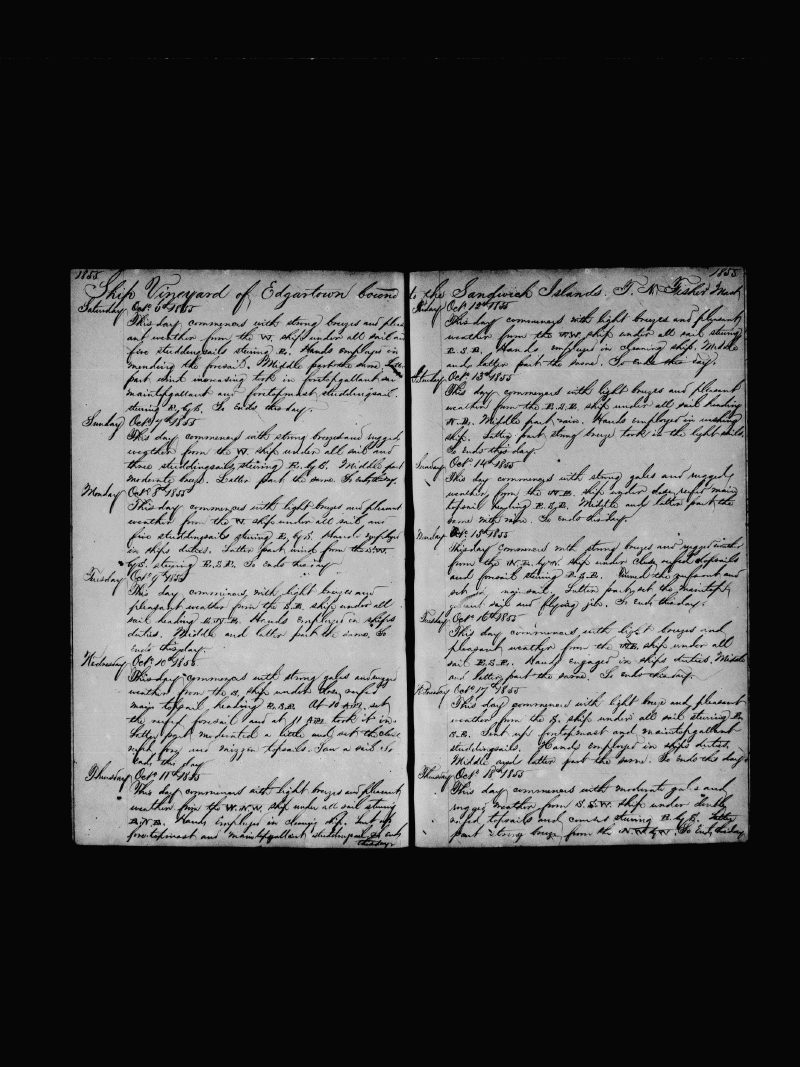 1855
Ship Vineyard of Edgartown bound
Saturday Octr 6th 1855
This day commences with strong breezes and pleas
ant weather from the W. ship under all sail and
five studdingsails steering E. Hands employed in
mending the foresail. Middle part the same. latter
part wind increasing took in foretopgallant and
maintopgallant and foretopmast studdingsail.
steering E. by S. So Ends this day.
Sunday Octr 7th 1855
This day commences with strong breezes and rugged
weather from the W. ship under all sail and
three studdingsails, steering E. by S. Middle part
moderate breeze. Latter part the same. So ends this day.
Monday Octr 8th 1855
This day commences with light breezes and pleasant
weather from the W ship under all sail and
five studdingsails steering E. by S. Hands employed
in ships duties. Latter part wind from the S.W.
by S. steering E.S.E. So Ends this day
Tuesday Octr 9th 1855
This day commences with light breezes and
pleasant weather from the S.E. ship under all
sail heading Hands employed in ships
duties. Middle and latter part the same. So
ends this day.
Wednesday Octr 10th 1855
This day commences with strong gales and rugged
weather from the ship under close reefed
main topsail heading At 10 A.M. set
the reefed foresail and at 11 A.M. took it in.
Latter part moderated a little and set the close
reefed fore and mizzen topsails. Saw a sail So
Ends this day
Thursday Octr 11th 1855
This day commences with light breezes and pleasant
weather from the W.N.W. ship under all sail steering
Hands Employed in cleaning ship. Sent up
foretopmast and maintopgallant studdingsail So ends
this day.
1855
to the Sandwich Islands. Fisher Mast
Friday Octr 12th 1855
This day commences with light breezes and pleasant
weather from the ship under all sail steering
E.S.E. Hands employed in cleaning ship. Middle
and latter part the same. So ends this day.
Saturday Octr 13th 1855
This day commences with light breezes and pleasant
weather from the ship under all sail heading
Middle part rain. Hands employed in washing
ship. Latter part strong breeze took in the light sails.
So ends this day.
Sunday Octr 14th 1855
This day commences with strong gales and rugged
weather from the N.E. ship under close reefed main
topsail heading E. by S. Middle and latter part the
same with rain. So ends this day.
Monday Octr 15th 1855
This day commences with strong breezes and rugged weather
from the N.E. by N. ship under close reefed topsails
and foresail steering E.S.E. the and
set mainsail Latter part set the maintop
gallant sail and flying jib. So ends this day.
Tuesday Octr 16th 1855
This day commences with light breezes and
pleasant weather from the ship under all
sail E.S.E. Hands engaged in ships duties. Middle
and latter part the same. So ends this day.
Wednesday Octr 17th 1855
This day commences with light breeze and pleasant
weather from the ship under all sail steering
Sent up foretopmast and maintopgallant
studdingsails. Hands employed in ships duties.
Middle and latter part the same. So ends this day
Thursday Octr 18th 1855
This day commences with moderate gales and
rugged weather from S.S.W. ship under double
reefed topsails and courses steering E. by S. Latter
part strong breeze from the So Ends this day